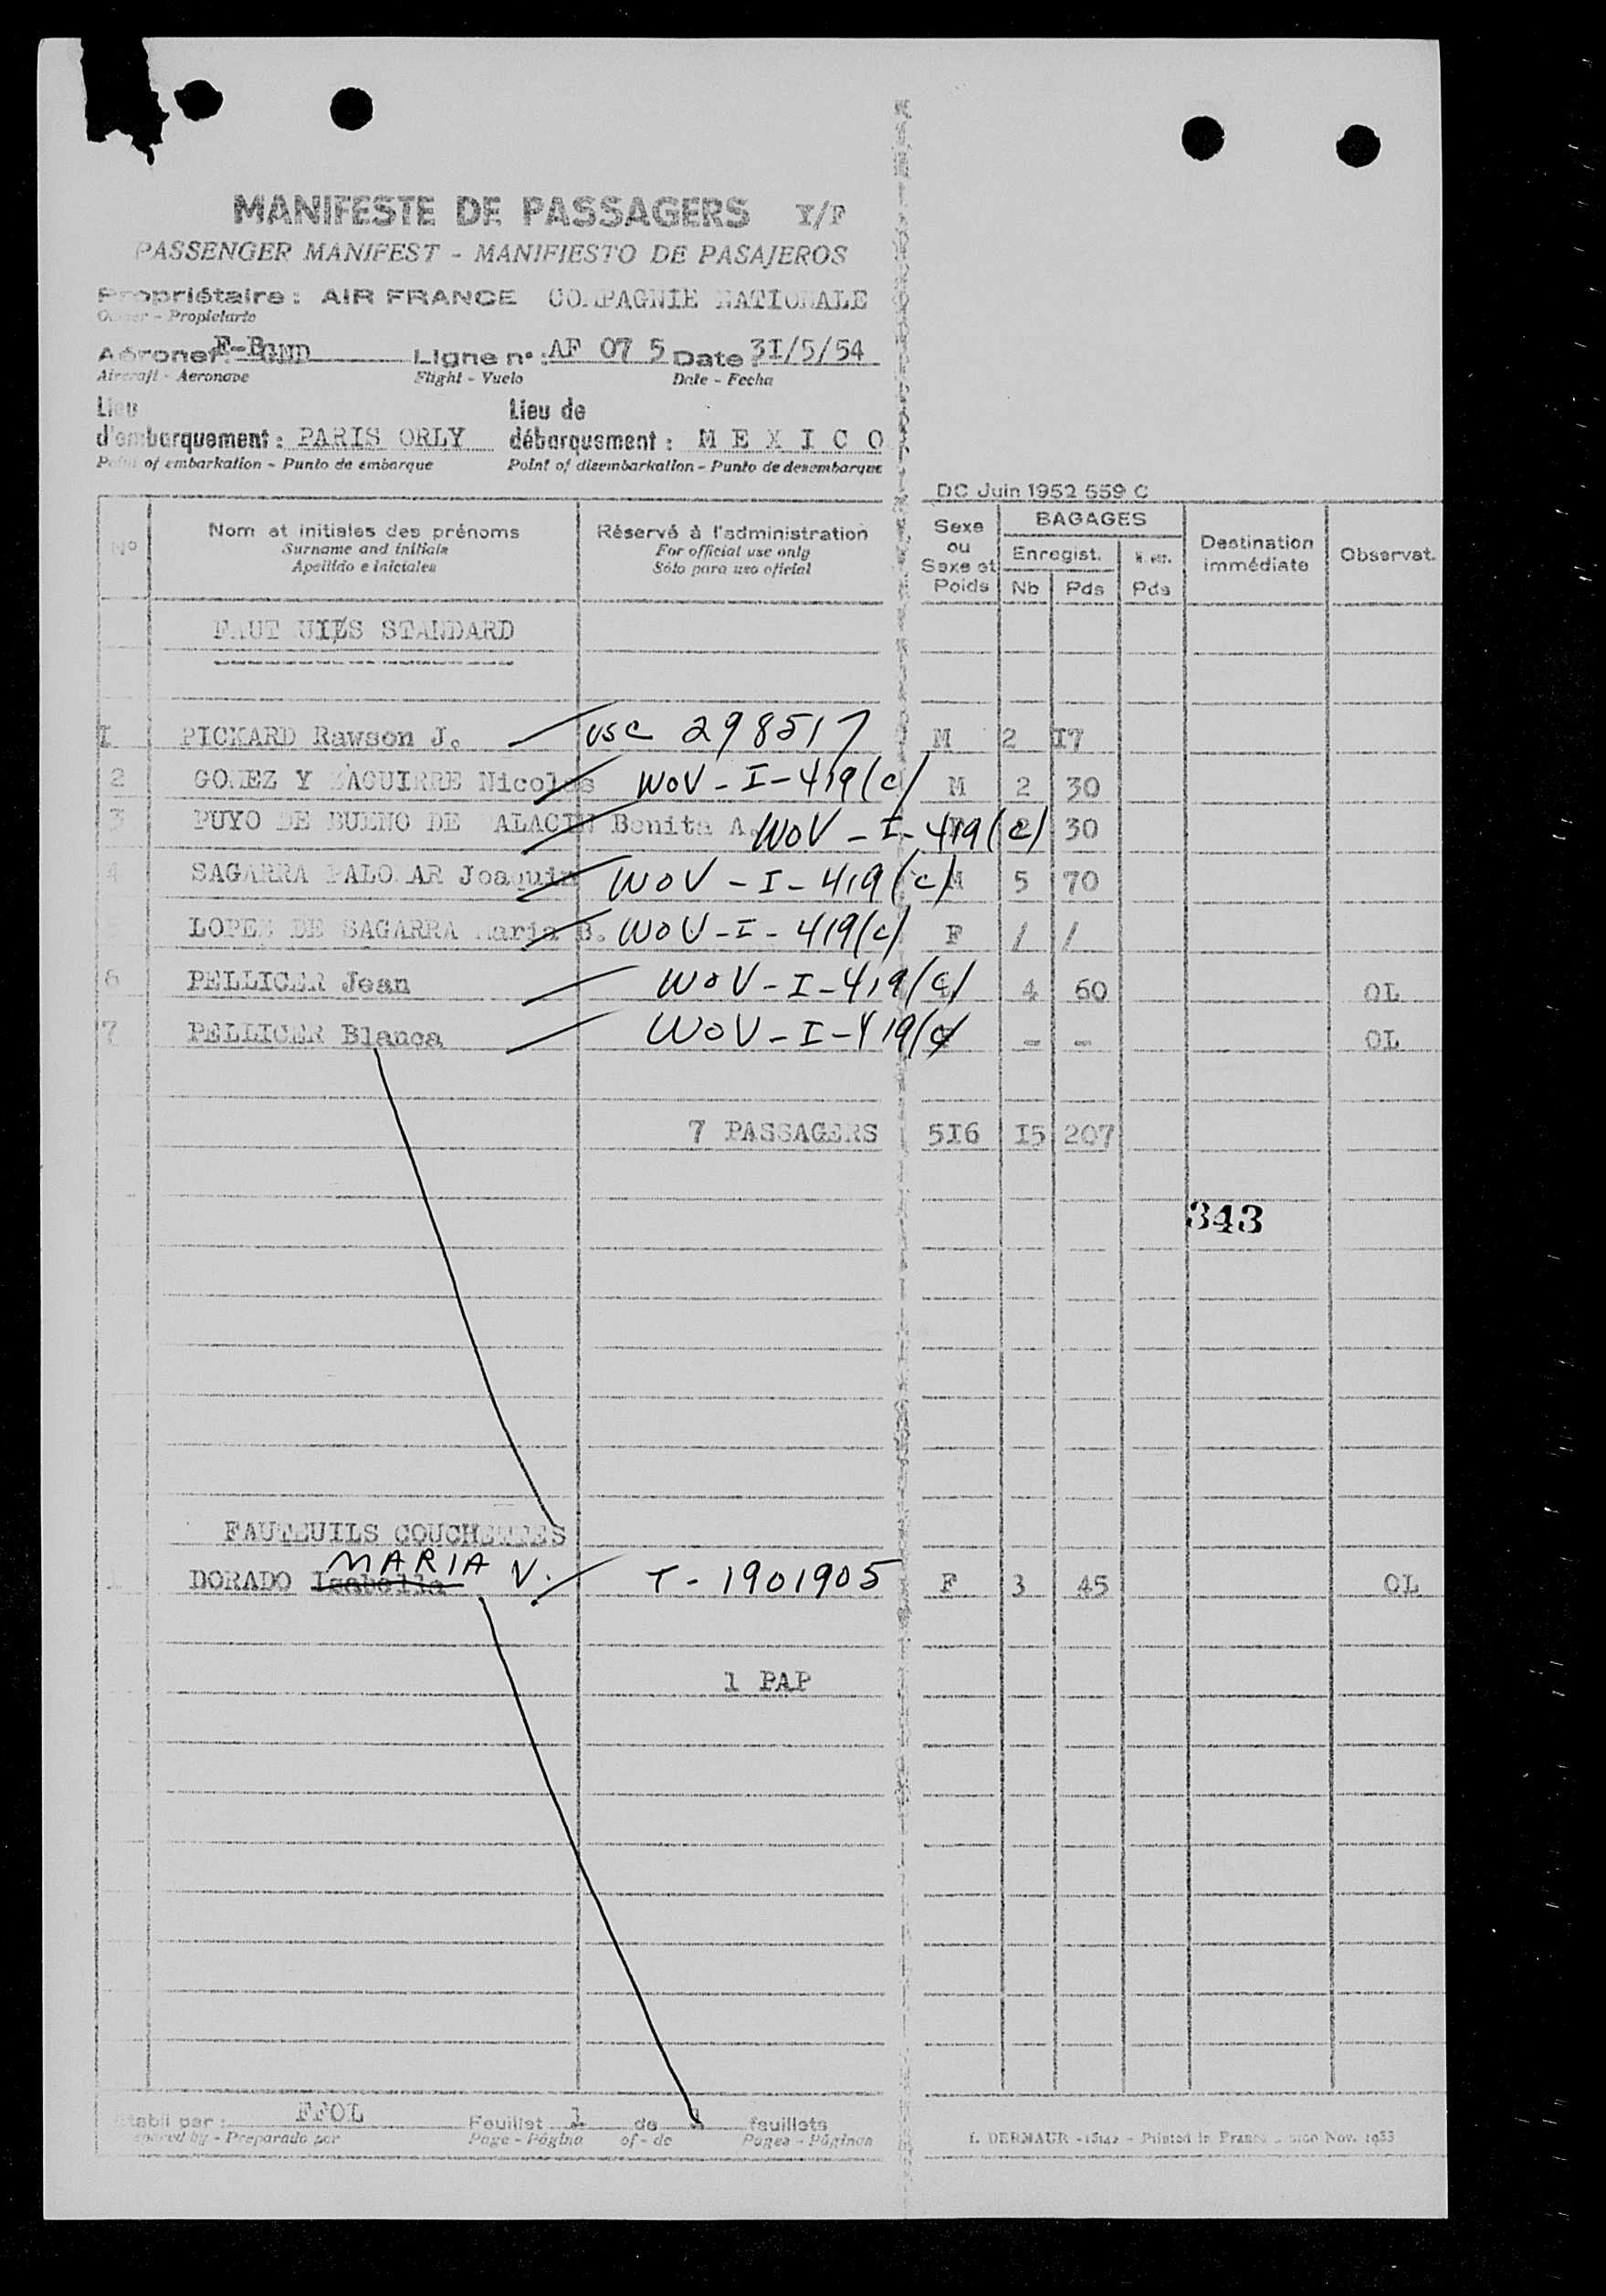 MANIFESTE DE PASSAGERS Y/F
PASSENGER MANIFEST - MANIFIESTO DE PASAJEROS
Propriétaire : AIR FRANCE COMPAGNIE NATIONALE
Owner - Propietario
Aéronef : F-BGND Ligne n° : AF 07 5 Date 3I/5/54
Aircraft - Aeronave Flight - Vuelo Date - Fecha
Lieu Lieu de
d'embarquement : PARIS ORLY débarquement : M E X I C O
Point of embarkation - Punto de embarque Point of disembarkation - Punto de desembarque
DC Juin 1952 559 C
N° Nom et initiales des prénoms Réservé à l'administration Sexe ou Sexe et Poids BAGAGES Destination immédiate Observat.
Surname and initials For official use only Enregist.
Apellido e iniciales Sólo para uso oficial Nb Pds Pds
FAUT UILS STANDARD
I PICKARD Rawson J. USC 298517 M 2 I7
2 GOMEZ Y Nicolas WOV - I - 419(c) M 2 30
3 PUYO DE BUENO DE ALACIN Benita A. WOV - I - 419(c) 30
4 SAGARRA PALOMAR Joaquin WOV - I - 419(c) M 5 70
LOPEZ DE SAGARRA Maria B. WOV - I - 419(c) F / /
6 PELLICER Jean WOV - I - 419(c) 4 60 OL
7 PELLICER Blanca WOV - I - 419(c) - - OL
7 PASSAGERS 5I6 I5 207
343
FAUTEUILS COUCHETTES
MARIA V.
1 DORADO Isabella T - 1901905 F 3 45 OL
1 PAP
Etabli par : FFOL Feuillet 1 de 1 feuillets
Prepared by - Preparado por Page - Página of - de Pages - Páginas
DERMAUR - Printed in France Nov. 1953